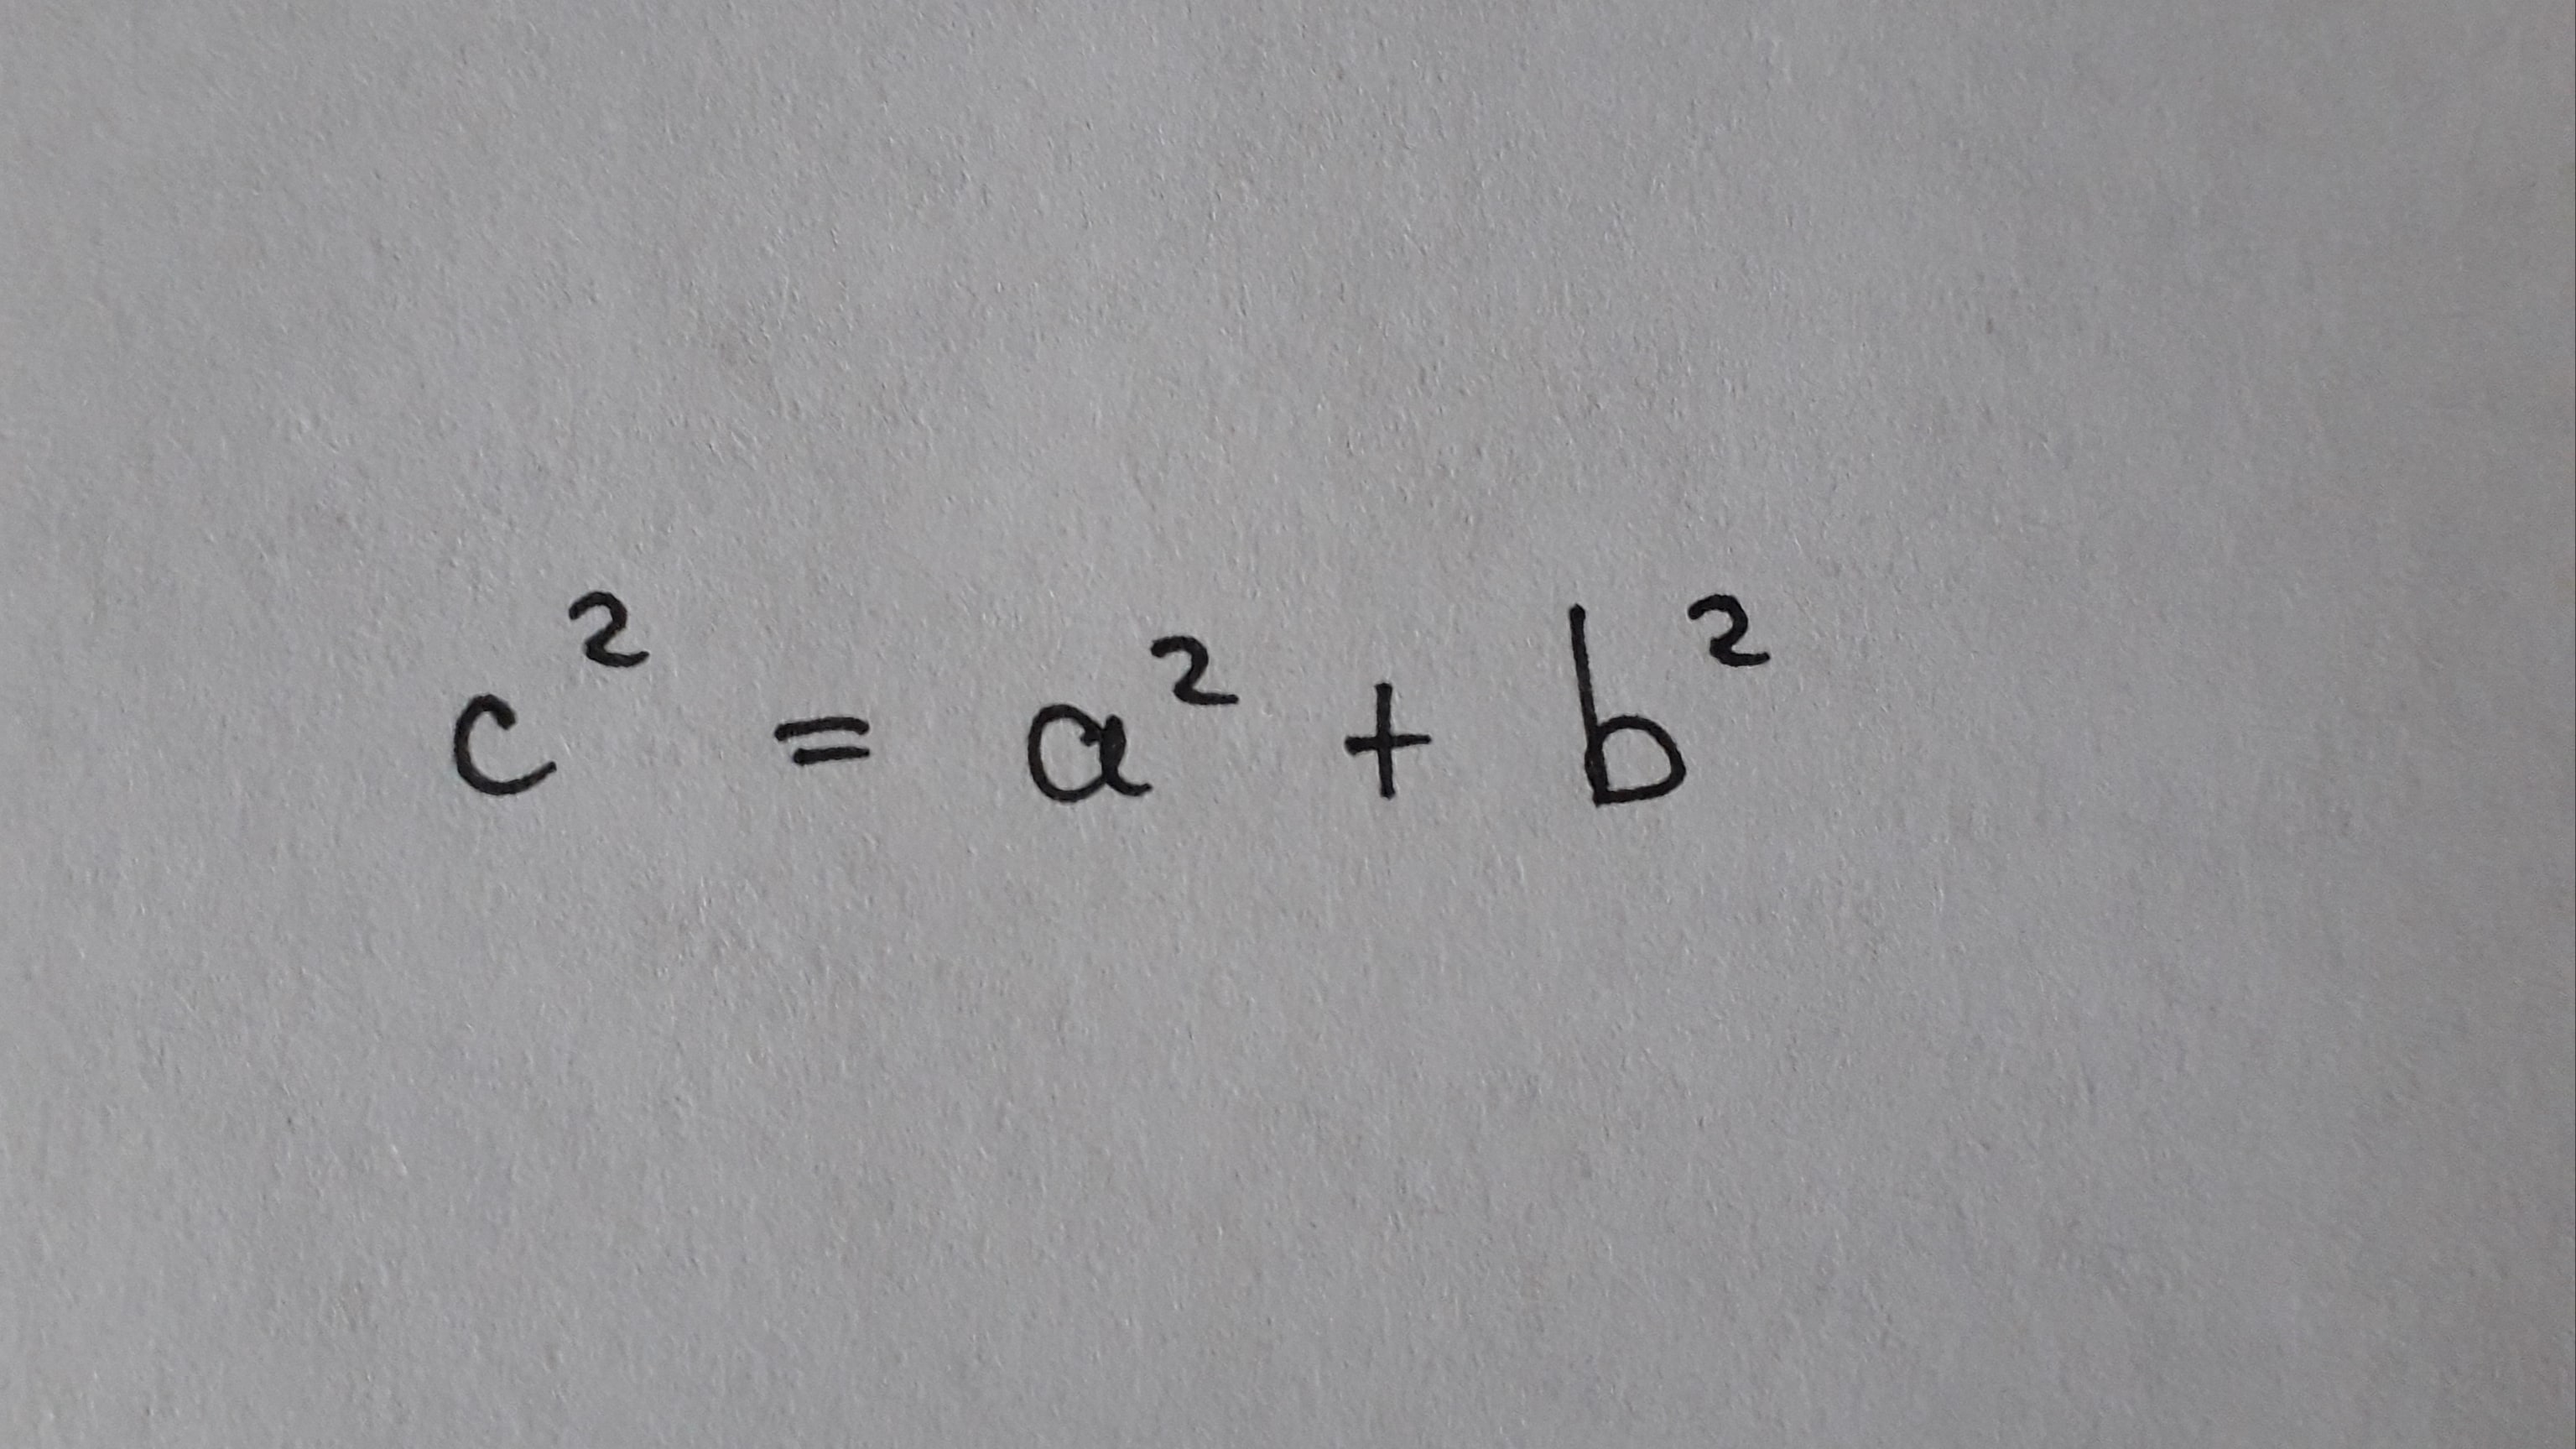 c² = a² + b²